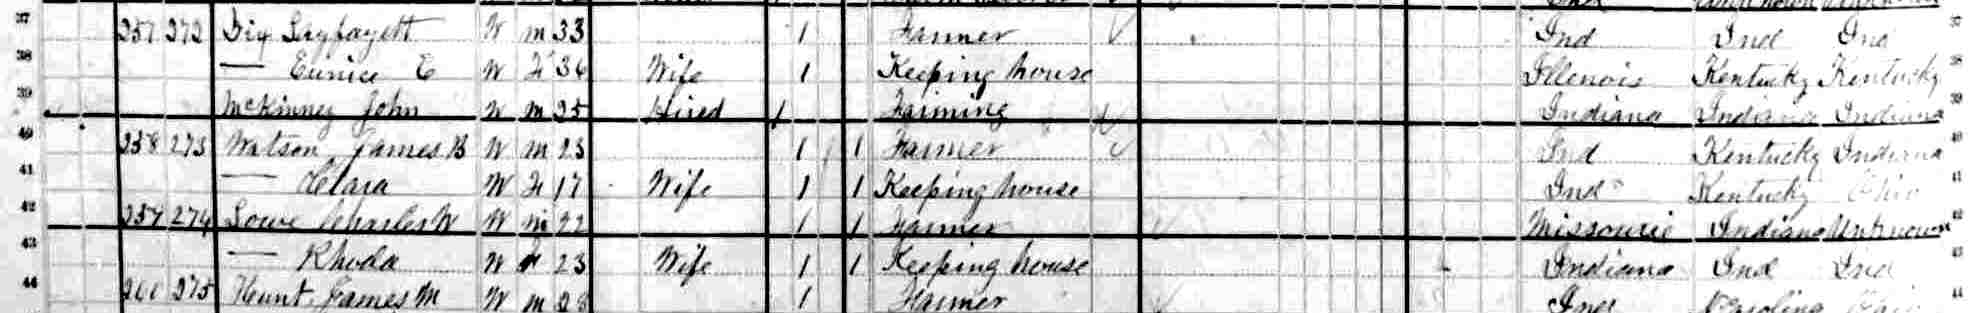 37 257 272 Dix Layfayett W M 33 1 Farmer Ind Ind Ind 37
38 — Eunice E W F 36 Wife 1 Keeping house Illenois Kentucky Kentucky 38
39 McKinney John W M 25 Hired 1 Farming Indiana Indiana Indiana 39
40 258 273 Watson James B W M 23 1 1 Farmer Ind Kentucky Indiana 40
41 — Clara W F 17 Wife 1 1 Keeping house Ind Kentucky Ohio 41
42 259 274 Lowe Charles W W M 22 1 1 Farmer Missourie Indiana Unknown 42
43 — Rhoda W F 23 Wife 1 1 Keeping house Indiana Ind Ind 43
44 260 275 Hunt James M W M 28 1 Farmer Ind Carolina 44